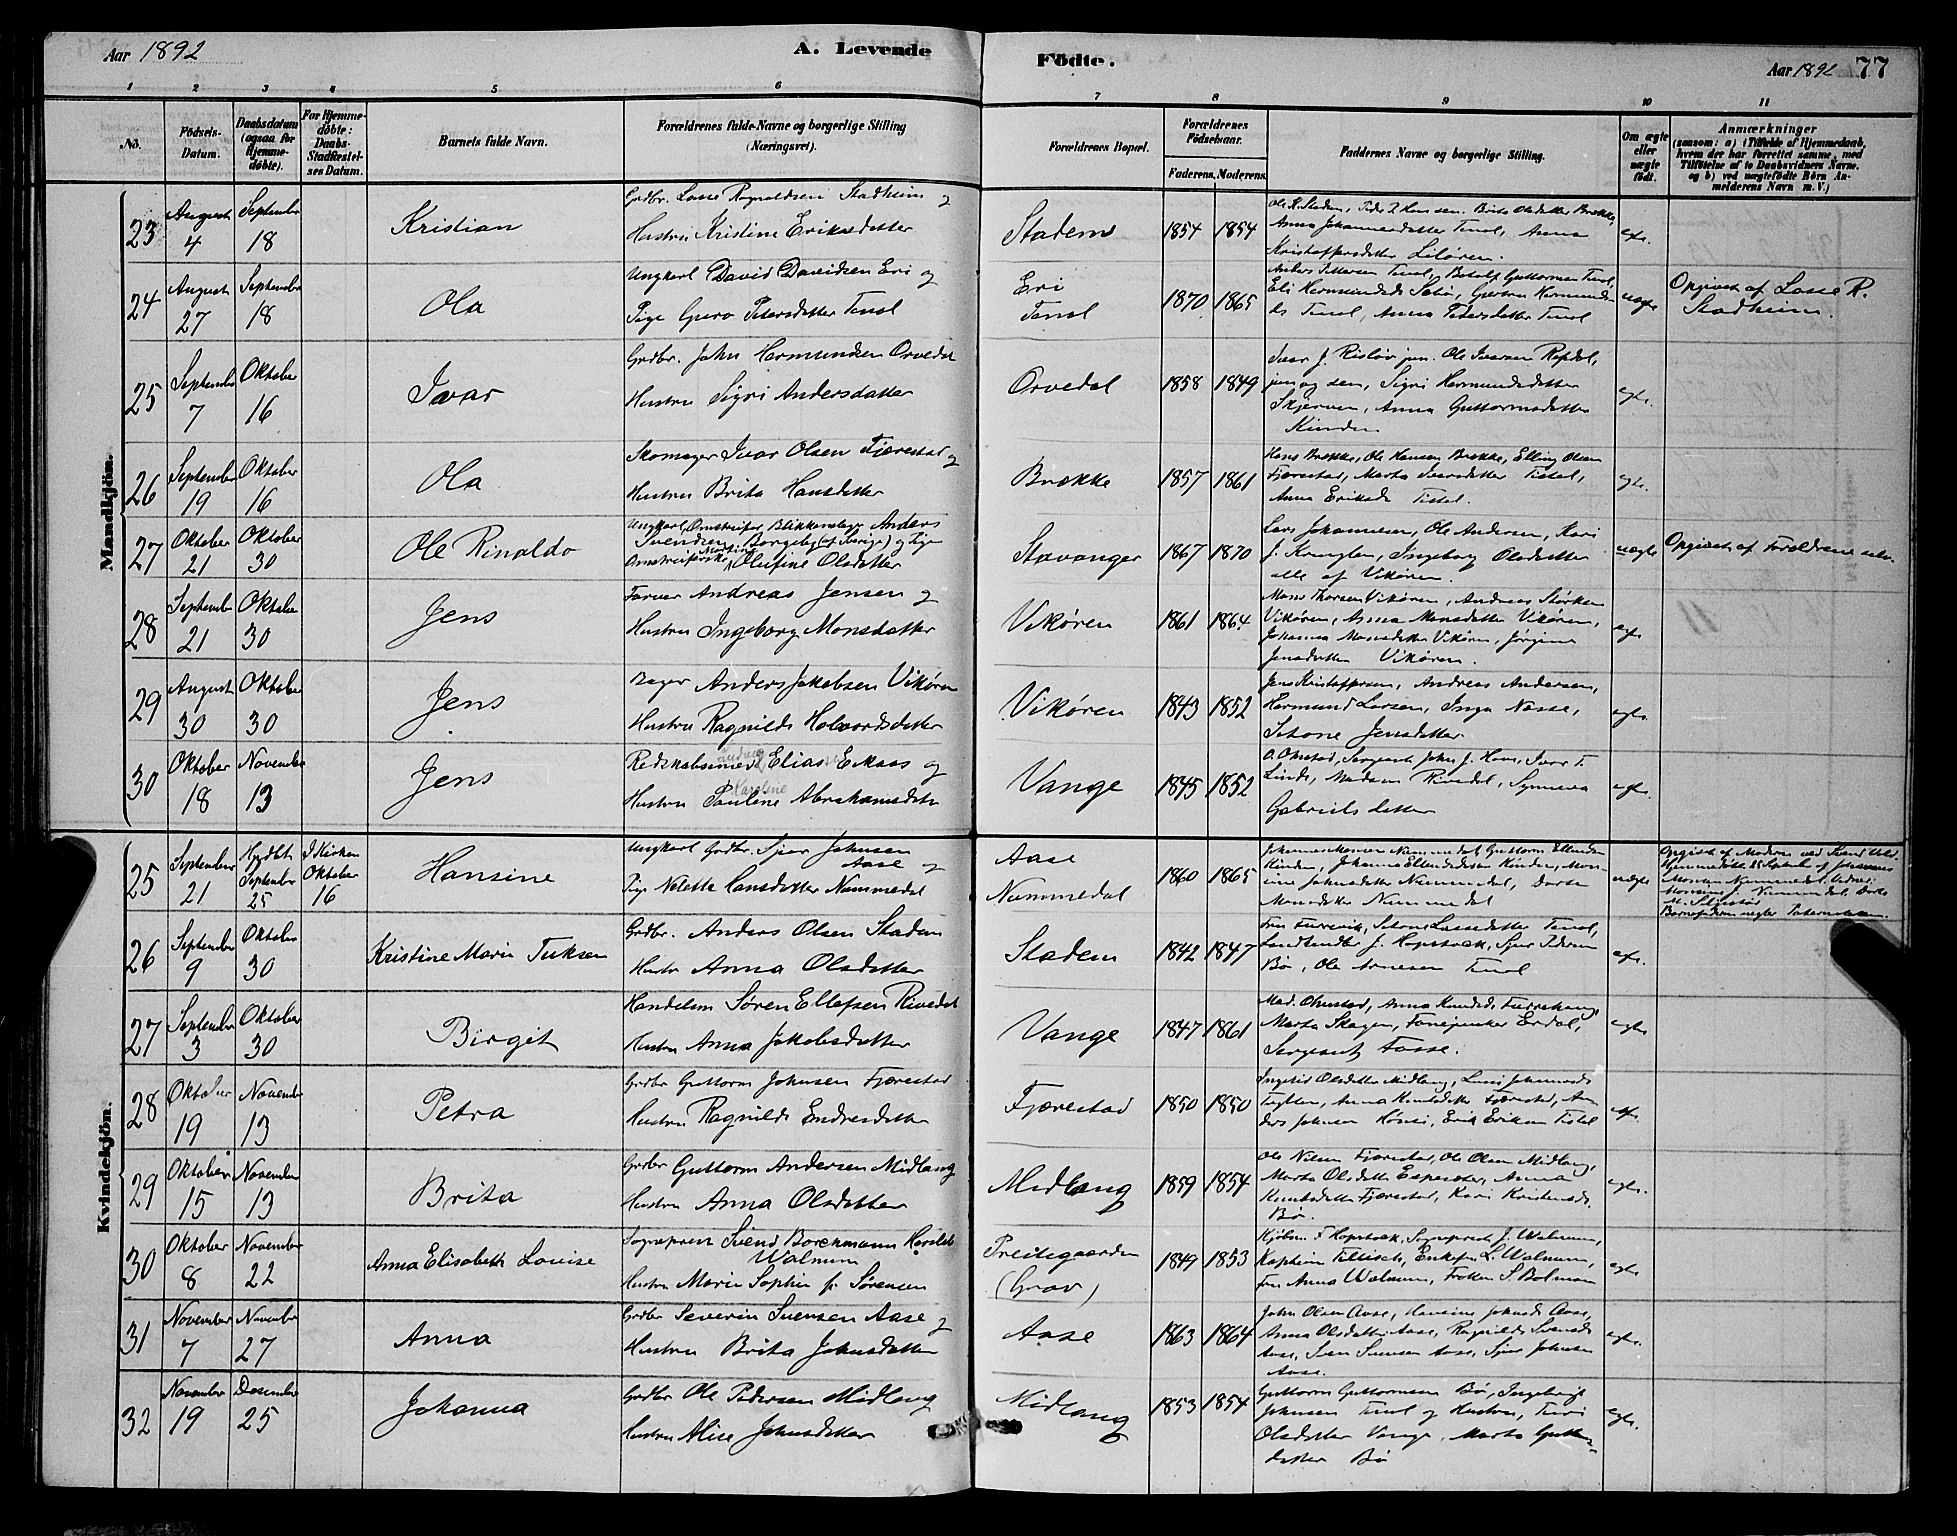 Aar 1892
A. Levende
Födte.
Aar 1892
77
1 2 3 4 5 6 7 8 9 10 11
No.
Födsels-Datum.
Daabsdatum (ogsaa for Hjemmedöbte).
For Hjemmedöbte: Daabs-Stadfæstelses Datum.
Barnets fulde Navn.
Forældrenes fulde Navne og borgerlige Stilling (Næringsvei).
Forældrenes Bopæl.
Forældrenes Födselsaar.
Faderens. Moderens.
Faddernes Navne og borgerlige Stilling.
Om ægte eller uægte födt.
Anmærkninger
(saasom: a) i Tilfælde af Hjemmedaab, hvem der har forrettet samme, med Tilföielse af to Daabsvidners Navne. og b) ved uægtefödte Börn Anmelderens Navn m. V.)
Mandkjön.
23 August 4 September 18 Kristian
Grdbr. Lasse Ragnaldsen Stadheim og
Hustru Kristine Eriksdatter
Stadem 1854 1854
Anna Johannesdatter Tenol, Anna
Kristoffersdatter
24 August 27 September 18 Ola
Ungkarl David Davidsen Eri og
Pige Guro Petersdatter Tenol
Eri
Tenol
1870 1865
Anders Pettersen Tenol, Botolf Guttormsen Tenol,
Tenol, Anna Pedersdatter Tenol
uægte
Opgivet af Lasse R.
Stadheim.
25 September 7 Oktober 16 Ivar
Grdbr. John Hermundsen Orvedal
Hustru Sigri Andersdatter
Orvedal 1858 1849
Ivar J. Risløv jun. Ole Ivarsen
jun og sen, Sigri Hermundsdatter
Skjerven, Anna Guttormsdatter
Hinden
egte.
26 September 19 Oktober 16 Ola
Skomager Ivar Olsen Fjærestad og
Hustru Brita Hansdatter
Brække 1857 1861
Hans Brække, Ole Hansen Brække, Elling Olsen
Fjærestad, Marta Iversdatter Tistel,
Anna Eriksd. Tistel.
egte.
27 Oktober 21 Oktober 30 Ole Rinaldo
Ungkarl, Omstreifer, Blikkenslager Anders
Svendsen Borgeby (af Sverige) og Pige
Omstreiferske Martine Olufine Olsdatter
Stavanger 1867 1870
Lars Johannesen, Ole Andersen, Kari
J. Ingeborg Olsdatter
alle af Vikøren.
uægte
Opgivet af Forældrene selv.
28 September 21 Oktober 30 Jens
Farver Andreas Jensen og
Hustru Ingeborg Monsdatter
Vikøren 1861 1864
Mons Thorsen Vikøren, Andreas Størksen
Vikøren, Anna Monsdatter Vikøren,
Johanna Monsdatter Vikøren, Jørgine
Jensdatter Vikøren.
29 August 30 Oktober 30 Jens
Bager Anders Jakobsen Vikøren
Hustru Ragnilds Halvordsdatter
Vikøren 1843 1852
Jens Kristoffersen, Andreas Andersen,
Hermund Larsen, Inga Nasse,
Jensdatter
egte.
30 Oktober 18 November 13 Jens
Ludvig
Elias Eckaas og
Karoline
Hustru Pauline Abrahamsdatr
Vange 1845 1852
O. Ohnstad, Sergeant John J. Hove, Ivar T.
Linde, Madam Rivedal, Synneva
Gabrielsdatter
Kvindekjön.
25 September 21 Hjdbt. September 25 I Kirken Oktober 16 Hansine
Ungkarl Grdbr. Sjur Johnsen
Aase og
Pige Nelette Hansdatter Nummedal
Aase
Nummedal
1860 1865
Johannes Monsen Nummedal, Guttorm Ellendsen
Hinden, Johanna Ellendsdatter Hinden,
Johnsdatter Nummedal, Dorte
Monsdatter Nummedal
uægte
Barnefaderen negter Paterniteten.
26 September 9 Oktober 30 Kristine Marie Tuksen
Grdbr. Anders Olsen Stadem
Hustr Anna Olsdatter
Stadem 1842 1847
Lassedatter Tenol,
J. Hopstock, Sjur
Bø, Ole Arnesen Tenol
27 September 3 Oktober 30 Birgit
Handelsm Søren Ellefsen Rivedal
Hustru Anna Jakobsdatter
Vange 1847 1861
Mad. Ohnstad, Anna Knudsd.
Marta Skagen, Erdal,
Sergeant Fosse.
egte
28 Oktober 19 November 13 Petra
Grdbr Guttorm Johnsen Fjærestad
Hustru Ragnilds Endresdatter
Fjærestad 1850 1850
Ingebrid Olsdatter Midlang,
Anna Knutsdatter Fjærestad,
Johnsen Erik Eriksen Tistel
29 Oktober 15 November 13 Brita
Grdbr Guttorm Andersen Midlang
Hustru Anna Olsdatter
Midlang 1859 1854
Ole Nilsen Fjærestad, Ole Olsen Midlang,
Marta Olsdatter Anna
Knutsdatter Fjærestad, Kari Kristensd.
Bø.
egte.
30 Oktober 8 November 22 Anna Elisabeth Louise
Sogneprest Svend Borchmann Hersleb
Walnum
Hustru Marie Sophie f. Sørensen
Prestegaarden
(Grav)
1849 1853
F Hopstock, Sogneprest J. Walnum,
Kaptein L. Walnum,
Fru Anna Walnum, Frøken S. Bolman
egte
31 November 7 November 27 Anna
Grdbr Severin Svensen Aase og
Hustru Brita Johnsdatter
Aase 1863 1864
John Olsen Aase, Hansine Johnsd. Aase,
Anna Olsdatter Aase, Ragnilds Svensd.
Aase, Sven Svensen Aase, Sjur Johnsen
Aase.
egte.
32 November 19 Desember 25 Johanna
Grdbr Ole Pedersen Midlang
Hustru Alise Johnsdatter
Midlang 1853 1854
Guttorm Guttormsen Bø, Ingebrigt
Johnsen Tenol og Hustru, Turi
Olsdatter Vange, Marta Guttorms-
datter Bø
egte.